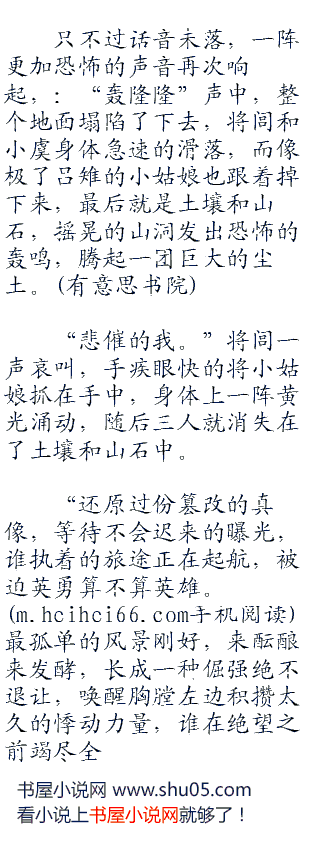 只不过话音未落，一阵
更加恐怖的声音再次响
起，：“轰隆隆”声中，整
个地面塌陷了下去，将闾和
小虞身体急速的滑落，而像
极了吕雉的小姑娘也跟着掉
下来，最后就是土壤和山
石，摇晃的山洞发出恐怖的
轰鸣，腾起一团巨大的尘
土。(有意思书院)
“悲催的我。”将闾一
声哀叫，手疾眼快的将小姑
娘抓在手中，身体上一阵黄
光涌动，随后三人就消失在
了土壤和山石中。
“还原过份篡改的真
像，等待不会迟来的曝光，
谁执着的旅途正在起航，被
迫英勇算不算英雄。
(m.hcihci66.com手机阅读)
最孤单的风景刚好，来酝酿
来发酵，长成一种倔强绝不
退让，唤醒胸膛左边积攒太
久的悸动力量，谁在绝望之
前竭尽全
书屋小说网 www.shu05.com
看小说上书屋小说网就够了！